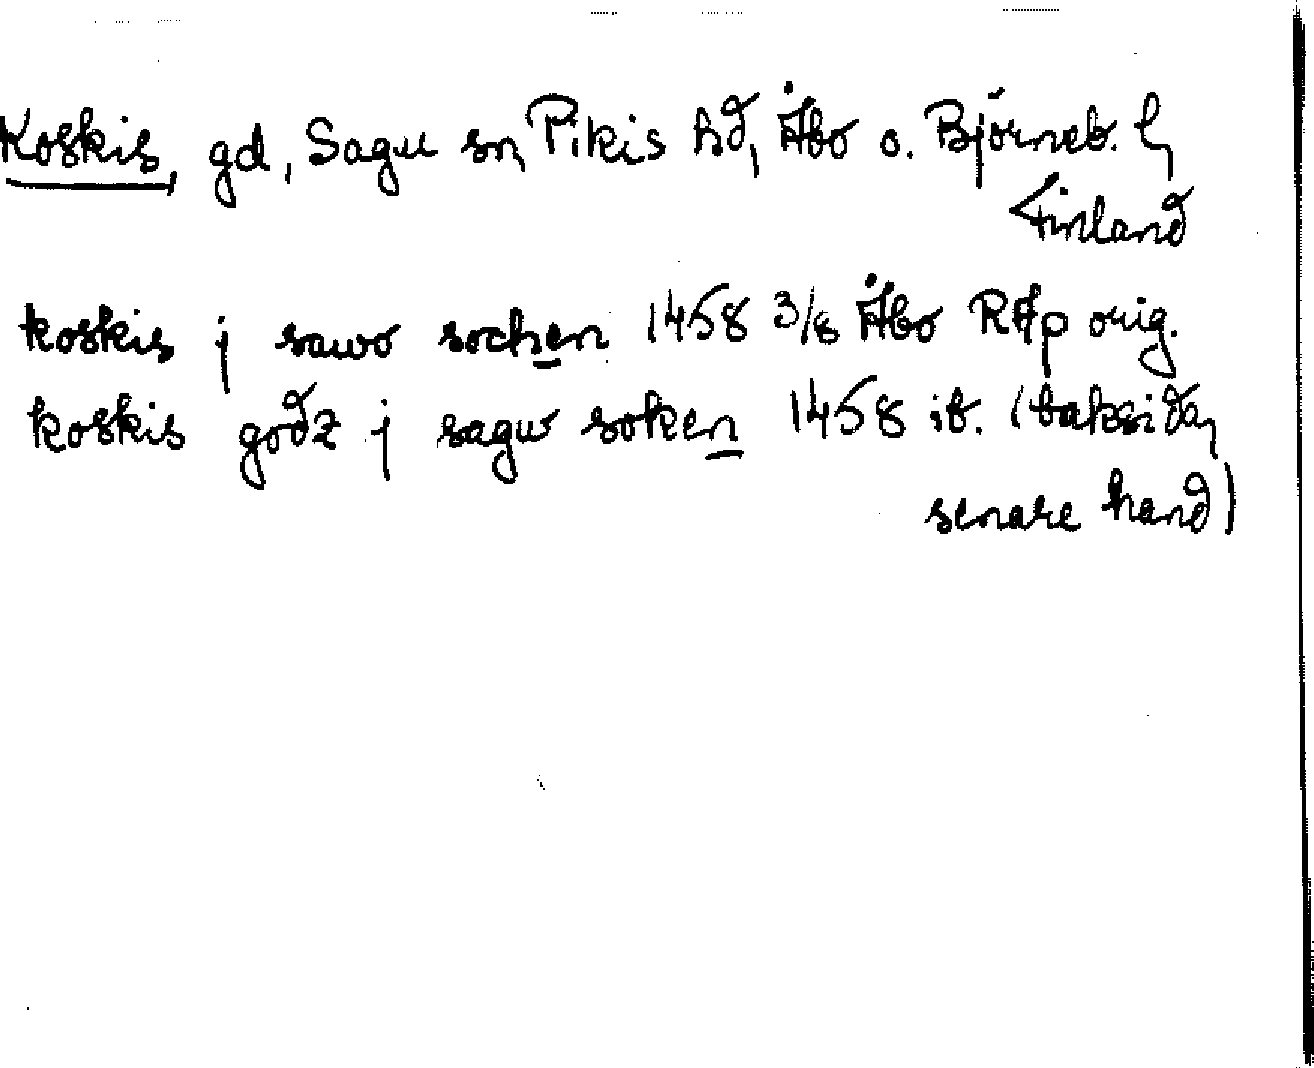 Koskis, gd, Sagu sn, Pikis hd, Åbo o. Björneb. l,
Finland
koskis j sawo sochen 1458 3/8 Åbo RAp orig.
koskis godz j sagw soken 1458 ib. (baksidan,
senare hand)